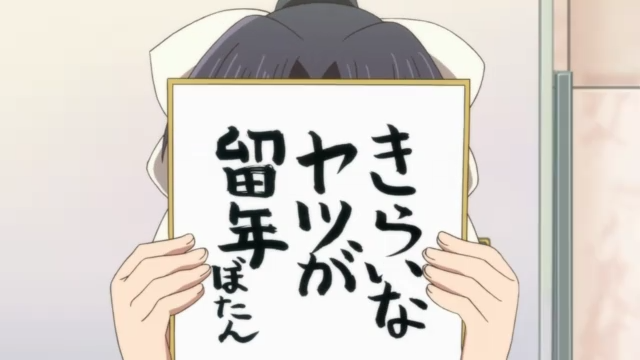 きらいな
ヤツが
留年
ぼたん